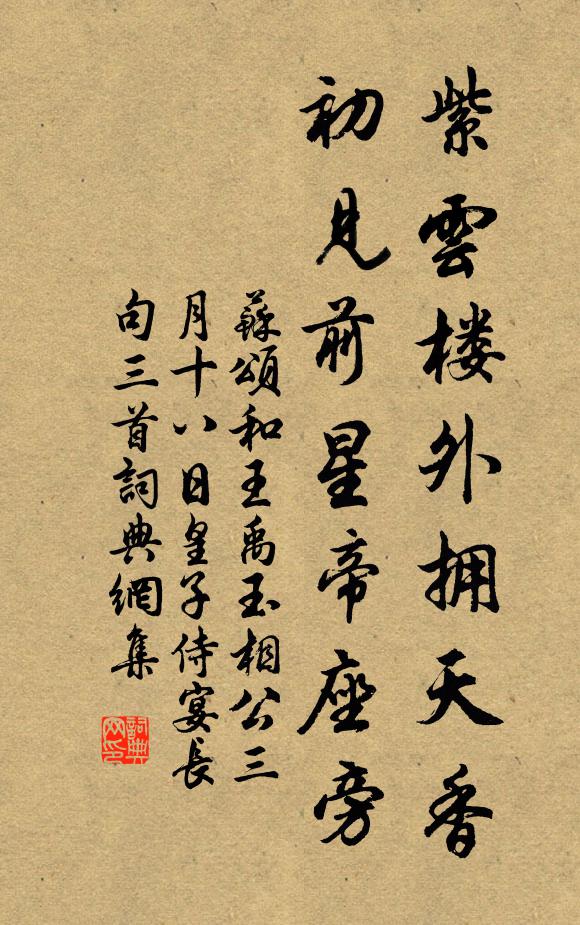 紫雲楼外拥天香
初見前星帝座旁
蘇頌和王禹玉相公三
月十八日皇子侍宴長
句三首詞典網集
詞典网印